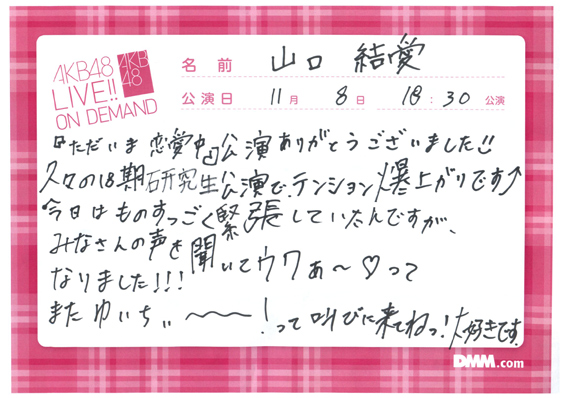 AKB48
LIVE!!
ON DEMAND
AKB
48
名前 山口 結愛
公演日 11月 8日 18:30 公演
『ただいま 恋愛中』公演ありがとうございました!!
久々の18期研究生公演で、テンション爆上がりです↑
今日はものすっごく緊張していたんですが、
みなさんの声を聞いてウワぁ〜♡って
なりました!!!
またゆいちぃ〜〜!って叫びに来てねっ!大好きです。
DMM.com